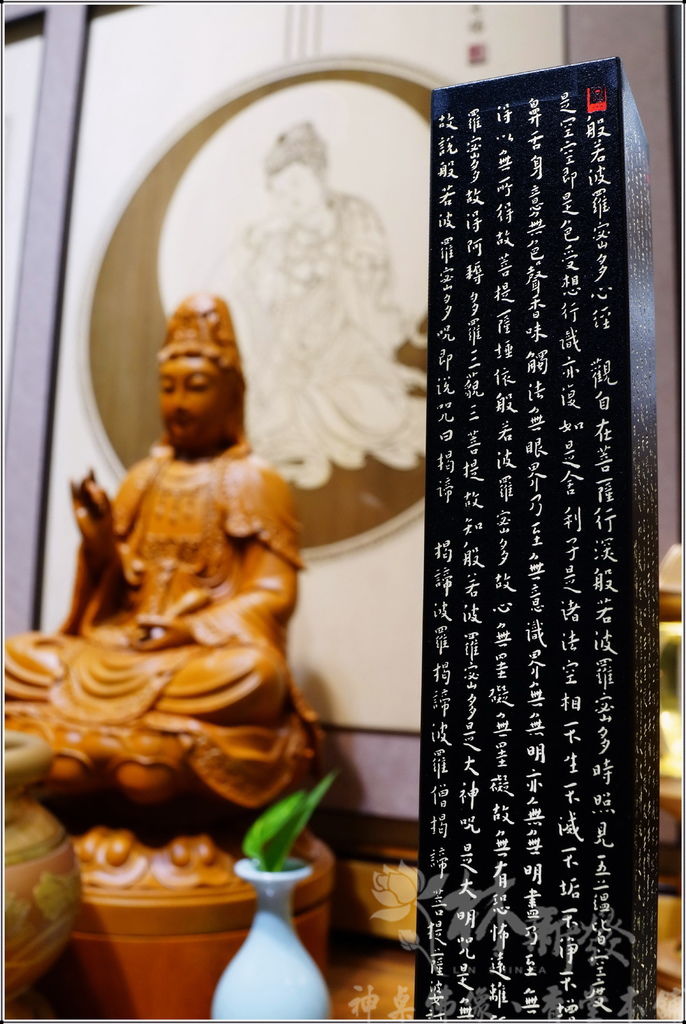 般若波羅密多心經 觀自在菩薩行深般若波羅密多時照見五蘊皆空度
是空空即是色受想行識亦復如是舍利子是諸法空相不生不滅不垢不淨不增
鼻舌身意無色聲香味觸法無眼界乃至無意識界無無明亦無無明盡乃至無
得以無所得故菩提薩埵依般若波羅密多故心無罣礙無罣礙故無有恐怖遠離
羅密多故得阿耨多羅三藐三菩提故知般若波羅密多是大神咒是大明咒是無
故說般若波羅密多咒即說咒曰揭諦 揭諦波羅揭諦波羅僧揭諦菩提薩婆訶
林新發
LIN SHINFA